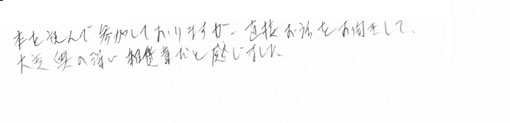 本を読んで参加しておりますが、直接お話をお聞きして、
大変奥の深い 相だと感じました